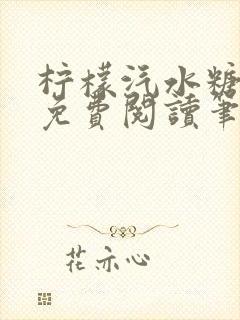 柠檬汽水糖
免費閱讀筆
花亦心